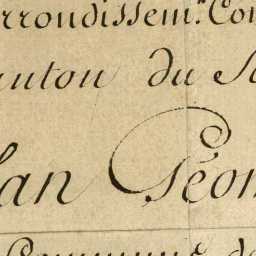 rrondissem.^t Con
anton du S
lan Géom
Commune de